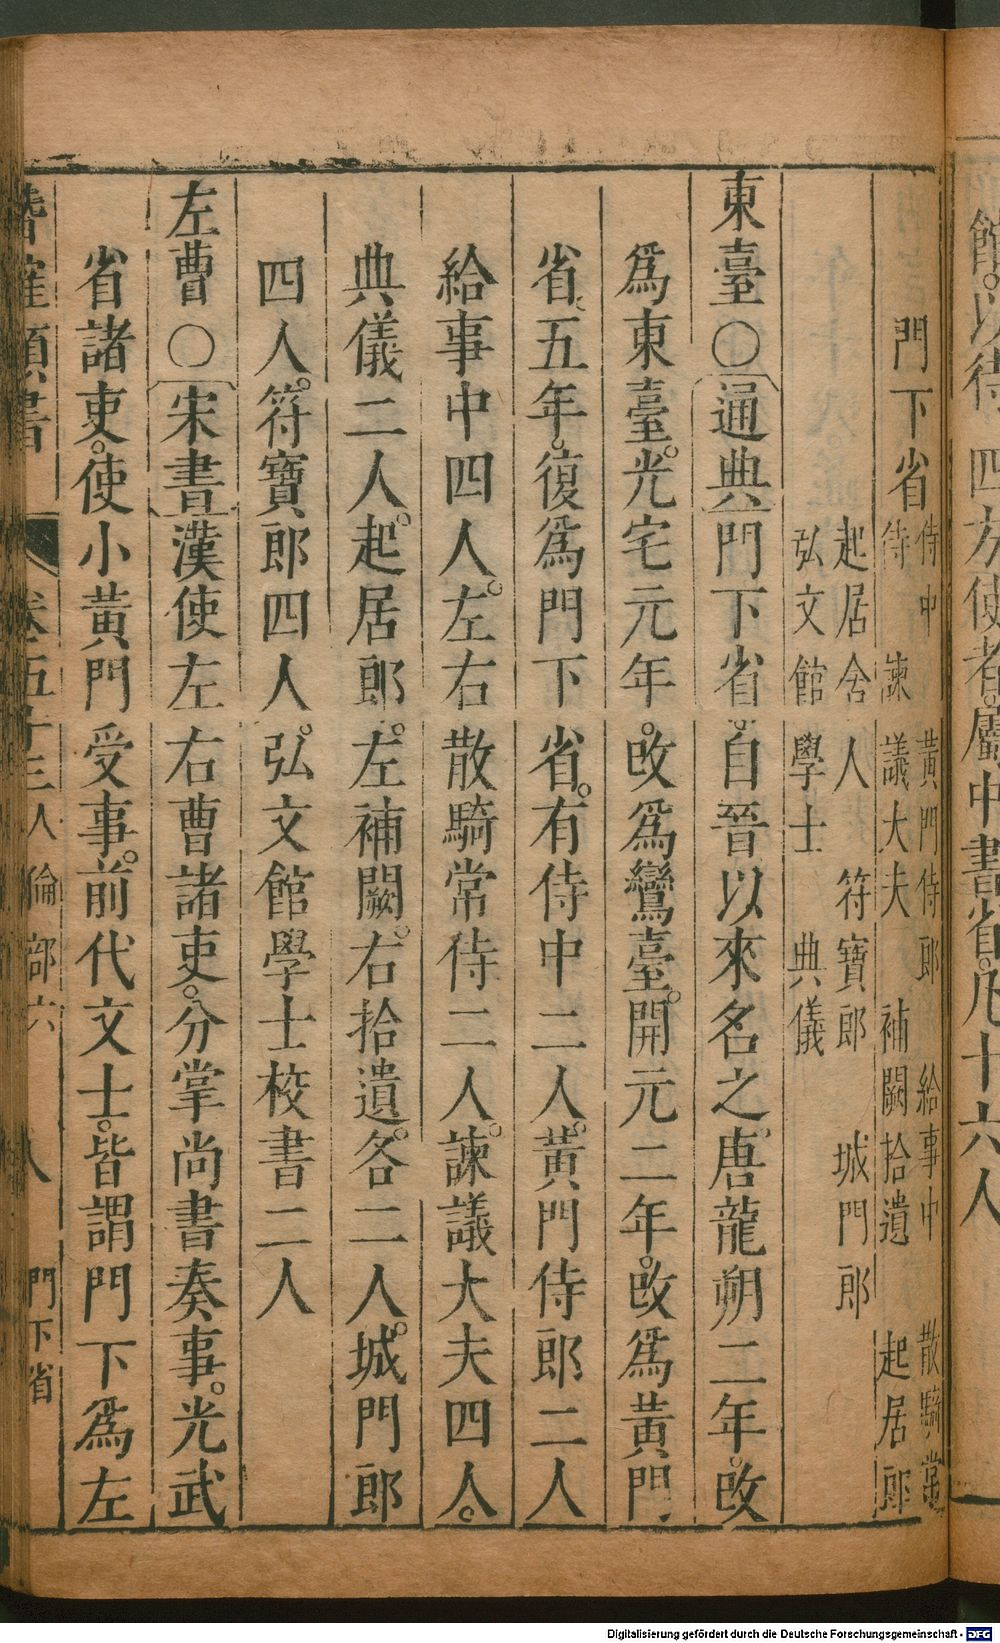 館。以待四方使者。屬中書省。凡十六人
門下省
侍中 黃門侍郎 給事中 散騎常
侍 諫議大夫 補闕拾遺 起居郎
起居舍人 符寶郎 城門郎
弘文館學士 典儀
東臺○通典門下省。自晉以來名之。唐龍朔二年。改
爲東臺。光宅元年。改爲鸞臺。開元二年。改爲黃門
省、五年。復爲門下省。有侍中二人。黃門侍郎二人
給事中四人。左右散騎常侍二人。諫議大夫四人。
典儀二人。起居郎。左補闕。右拾遺。各二人。城門郎
四人。符寶郎四人。弘文館學士校書二人
左曹○宋書漢使左右曹諸吏。分掌尚書奏事。光武
省諸吏。使小黃門受事。前代文士。皆謂門下爲左
潛確類書 卷五十三人倫部六 八 門下省
Digitalisierung gefördert durch die Deutsche Forschungsgemeinschaft - DFG